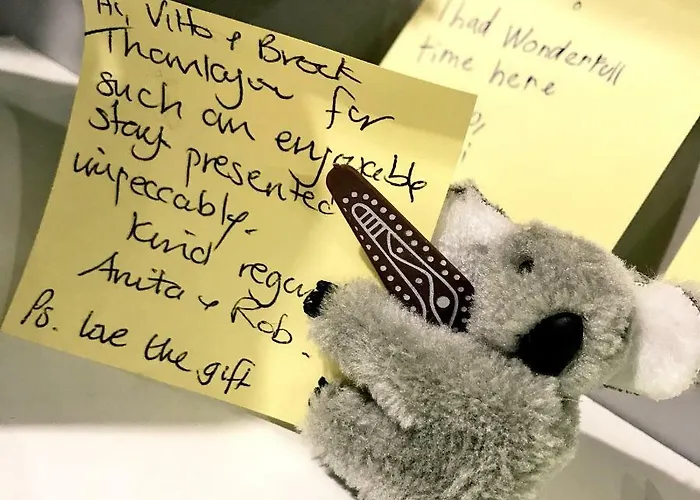 Hi, Vitto & Brock
Thankyou for
such an enjoyable
stay presented
impeccably.
Kind regar
Anita & Rob.
Ps. love the gift
I had Wonderfull
time here